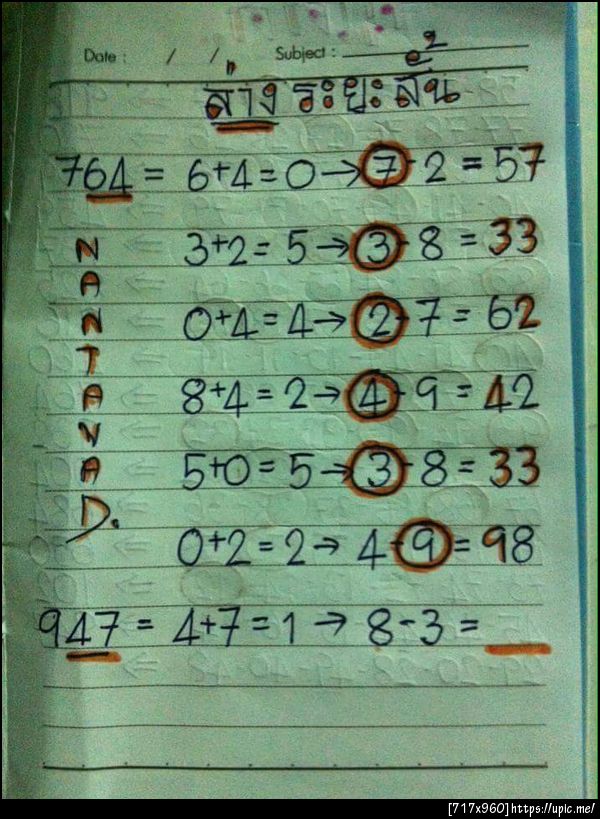 Date : / / Subject :
ล่าง ระยะสั้น 2
764 = 6+4=0→ 7-2 = 57
3+2= 5→ 3-8 = 33
0+4= 4→ 2-7 = 62
8+4= 2→ 4-9 = 42
5+0= 5→ 3-8 = 33
0+2= 2→ 4-9 = 98
947 = 4+7=1→ 8-3 =
NANTAWAD.
[717x960]https://upic.me/